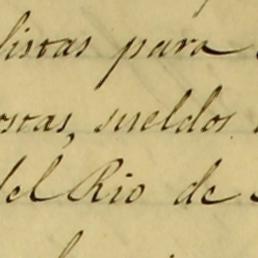 listas para
ostas, sueldos
del Rio de